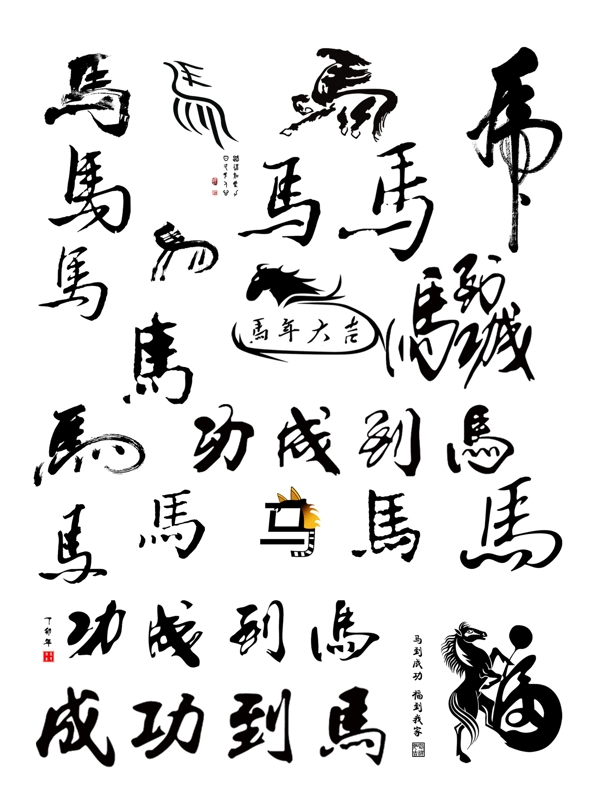 馬
馬
馬
馬
馬
馬
馬
馬
馬到功成
馬年大吉
馬
馬
功成到馬
馬
馬
马
馬
馬
丁卯年
功成到馬
马到成功 福到我家
福
成功到馬